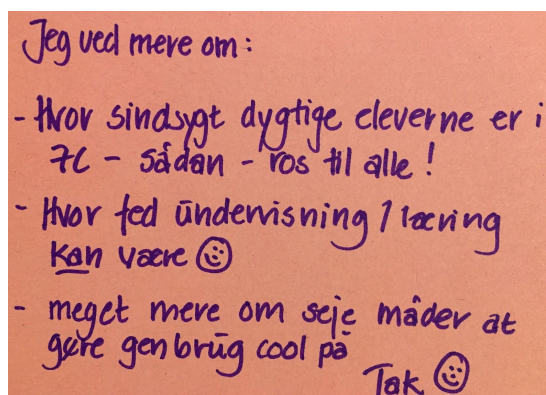 Jeg ved mere om:
- Hvor sindsygt dygtige eleverne er i
7C - sådan - ros til alle!
- Hvor fed undervisning / læring
kan være ☺
- meget mere om seje måder at
gøre genbrug cool på
Tak ☺